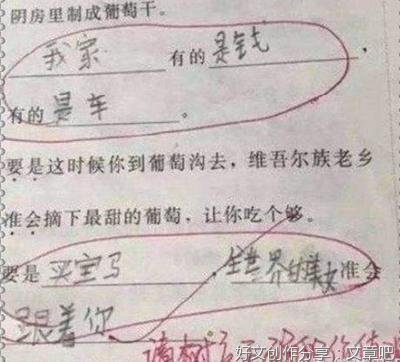 阴房里制成葡萄干。
我家 有的 是钱 ，
有的 是车 。
要是这时候你到葡萄沟去，维吾尔族老乡
准会摘下最甜的葡萄，让你吃个够。
要是 买宝马 ，全世界的美女 准会
跟着你
请树立正确的
好文创作分享，文章吧